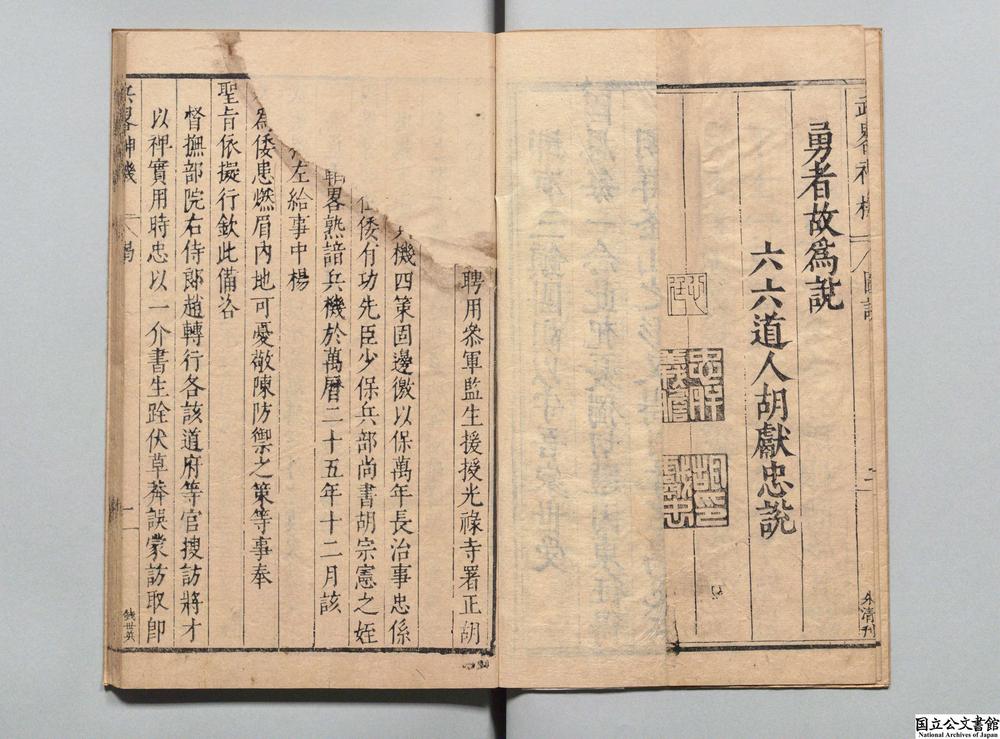 勇者故爲説
六六道人胡獻忠説
胡印獻忠
聘用叅軍監生援授光祿寺署正胡
機四策固邊徼以保萬年長治事忠係
倭有功先臣少保兵部尚書胡宗憲之姪
畧熟諳兵機於萬曆二十五年十二月該
左給事中楊
爲倭患燃眉内地可憂敬陳防禦之策等事奉
聖旨依擬行欽此備咨
督撫部院右侍郎趙轉行各該道府等官搜訪將才
以裨實用時忠以一介書生跧伏草莽誤蒙訪取即
畧神機
二
錢世英
国立公文書館
National Archives of Japan